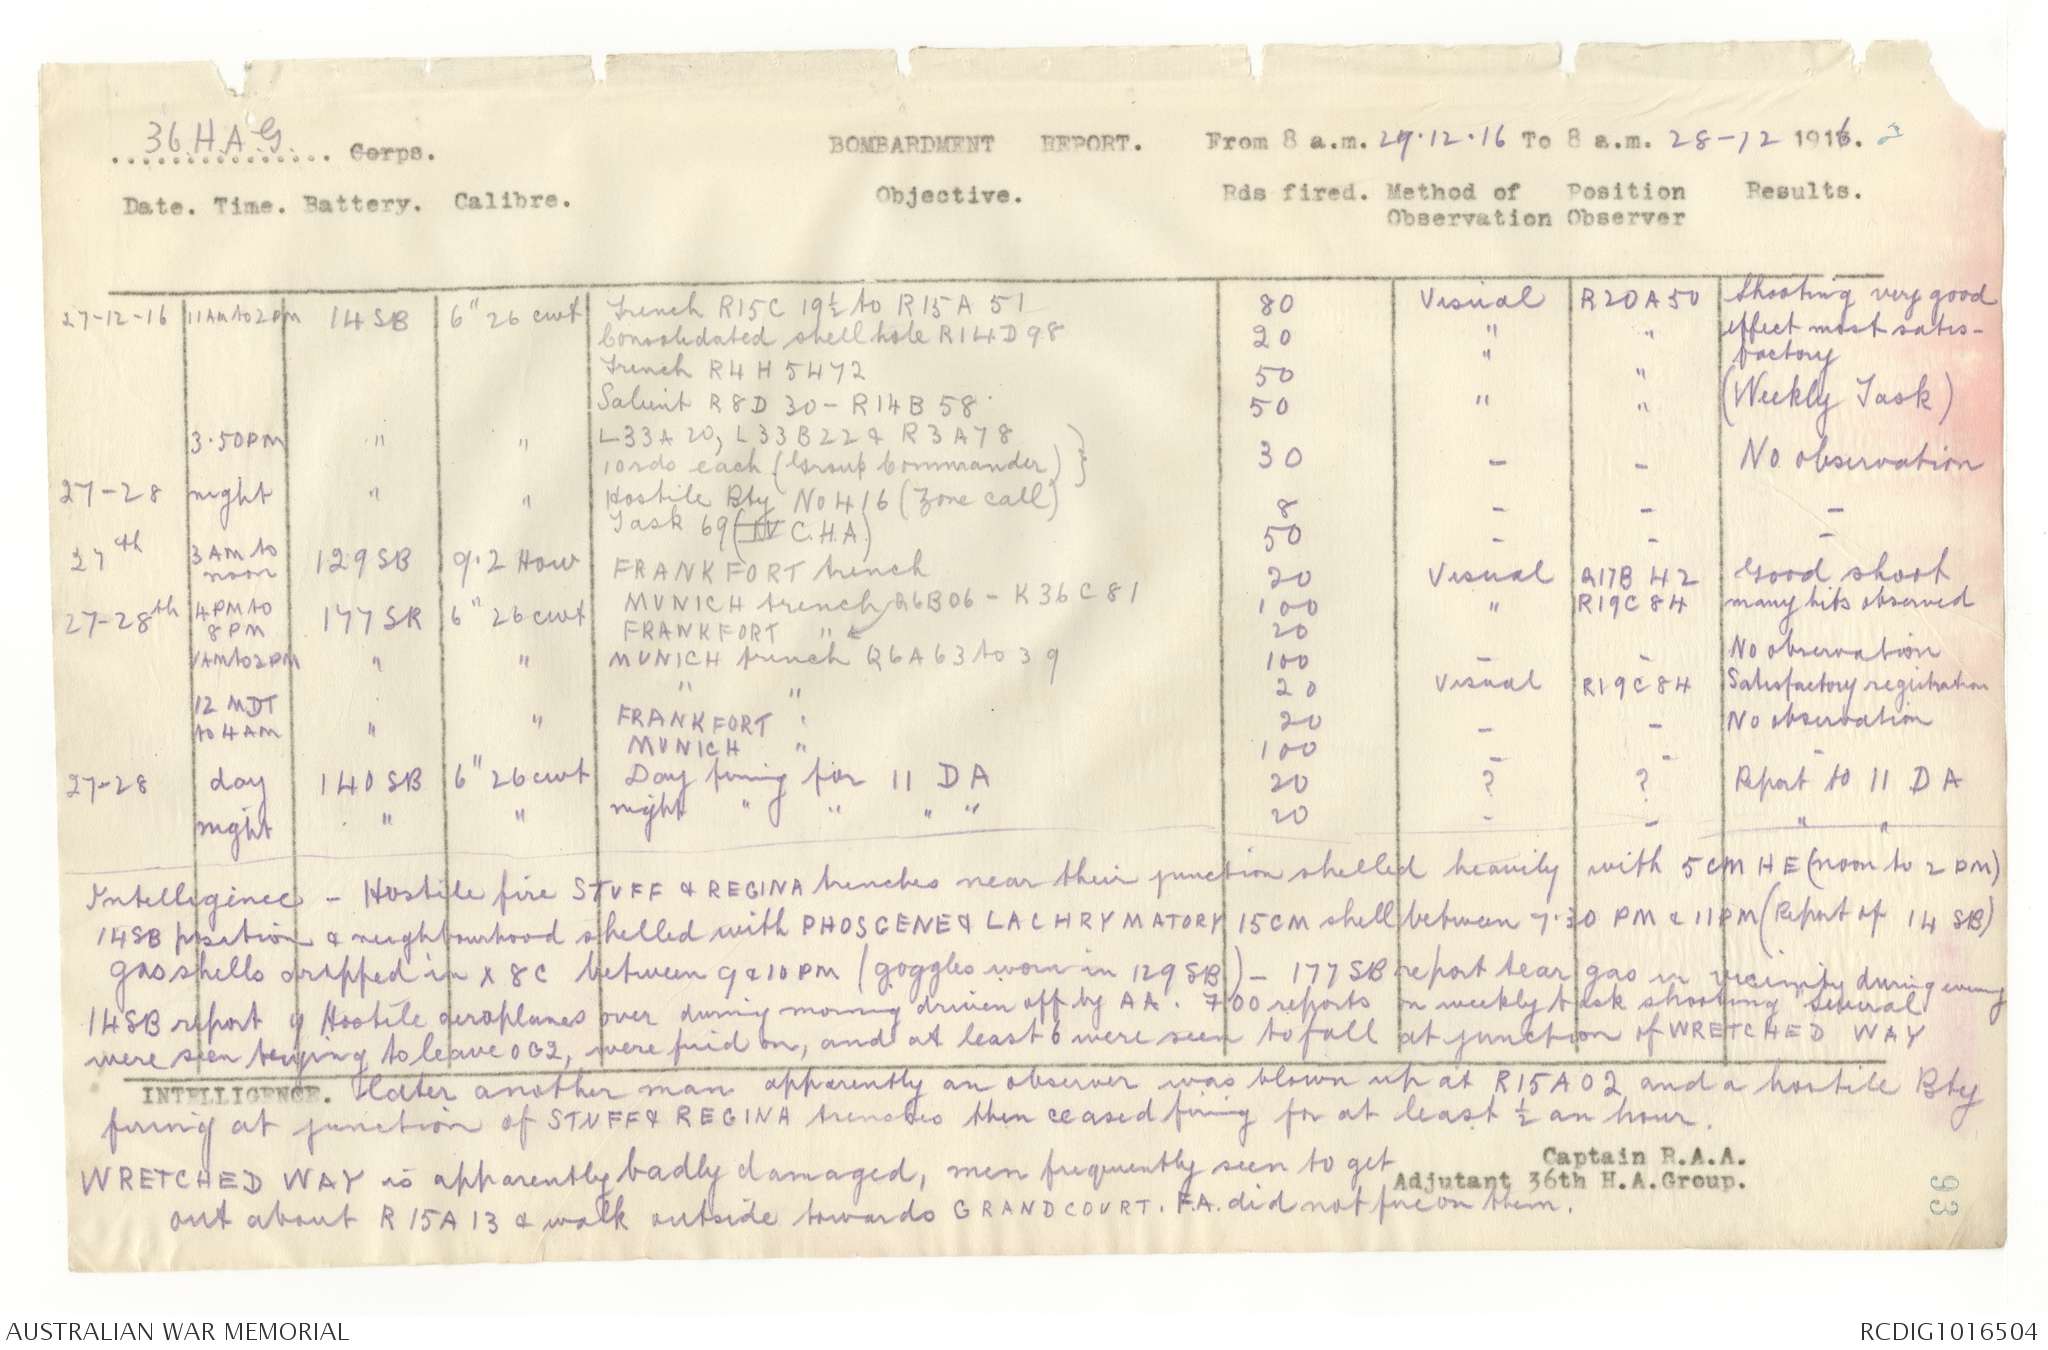 36 H.A.G. Corps. BOMBARDMENT REPORT. From 8 a.m. 27.12.16 To 8 a.m. 28-12 1916.
Date. Time. Battery. Calibre. Objective. Rds fired. Method of Observation Position Observer Results.
27-12-16 11AM to 2PM 14SB 6" 26 cwt Trench R15C 19½ to R15A 51 80 Visual R20A50 Shooting very good
Consolidated shell hole R14D98 20 " " effect most satis-
Trench R4H5472 50 " " factory
Salient R8D 30 - R14B 58 50 " " (Weekly Task)
3.50PM " " L33A20, L33B22 & R3A78
10rds each (Group Commander) } 30 - - No observation
27-28 night " " Hostile Bty No 416 (Zone call) 8 - - -
Task 69 (IV C.H.A.) 50 - - -
27th 3AM to noon 129SB 9.2 How FRANKFORT trench 20 Visual Q17B 42 Good shoot
27-28th 4PM to 8PM 177SB 6" 26cwt MUNICH trench Q6B06 - K36C81 100 " R19C84 many hits observed
FRANKFORT " 20
1AM to 2PM " " MUNICH trench Q6A63 to 39 100 - - No observation
" " 20 Visual R19C84 Satisfactory registration
12 MDT to 4AM " " FRANKFORT " 20 - - No observation
MUNICH " 100 - - -
27-28 day 140SB 6" 26cwt Day firing for 11 DA 20 ? ? Report to 11 DA
night " " night " " " " 20 - - " "
Intelligence - Hostile fire STUFF & REGINA trenches near their junction shelled heavily with 5CM HE (noon to 2 PM)
14SB position & neighbourhood shelled with PHOSGENE & LACHRYMATORY 15CM shell between 7.30 PM & 11PM (Report of 14 SB)
gas shells dropped in X8C between 9 & 10PM (goggles worn in 129SB) - 177SB report tear gas in vicinity during evening
14SB report 9 Hostile aeroplanes over during morning driven off by AA. 700 reports on weekly task shooting Several
were seen trying to leave OG2, were fired on, and at least 6 were seen to fall at junction of WRETCHED WAY
INTELLIGENCE. Later another man apparently an observer was blown up at R15A02 and a hostile Bty
firing at junction of STUFF & REGINA trenches then ceased firing for at least ½ an hour.
WRETCHED WAY is apparently badly damaged, men frequently seen to get
out about R15A13 & walk outside towards GRANDCOURT. F.A. did not fire on them.
Captain R.A.A.
Adjutant 36th H.A.Group.
93
AUSTRALIAN WAR MEMORIAL RCDIG1016504